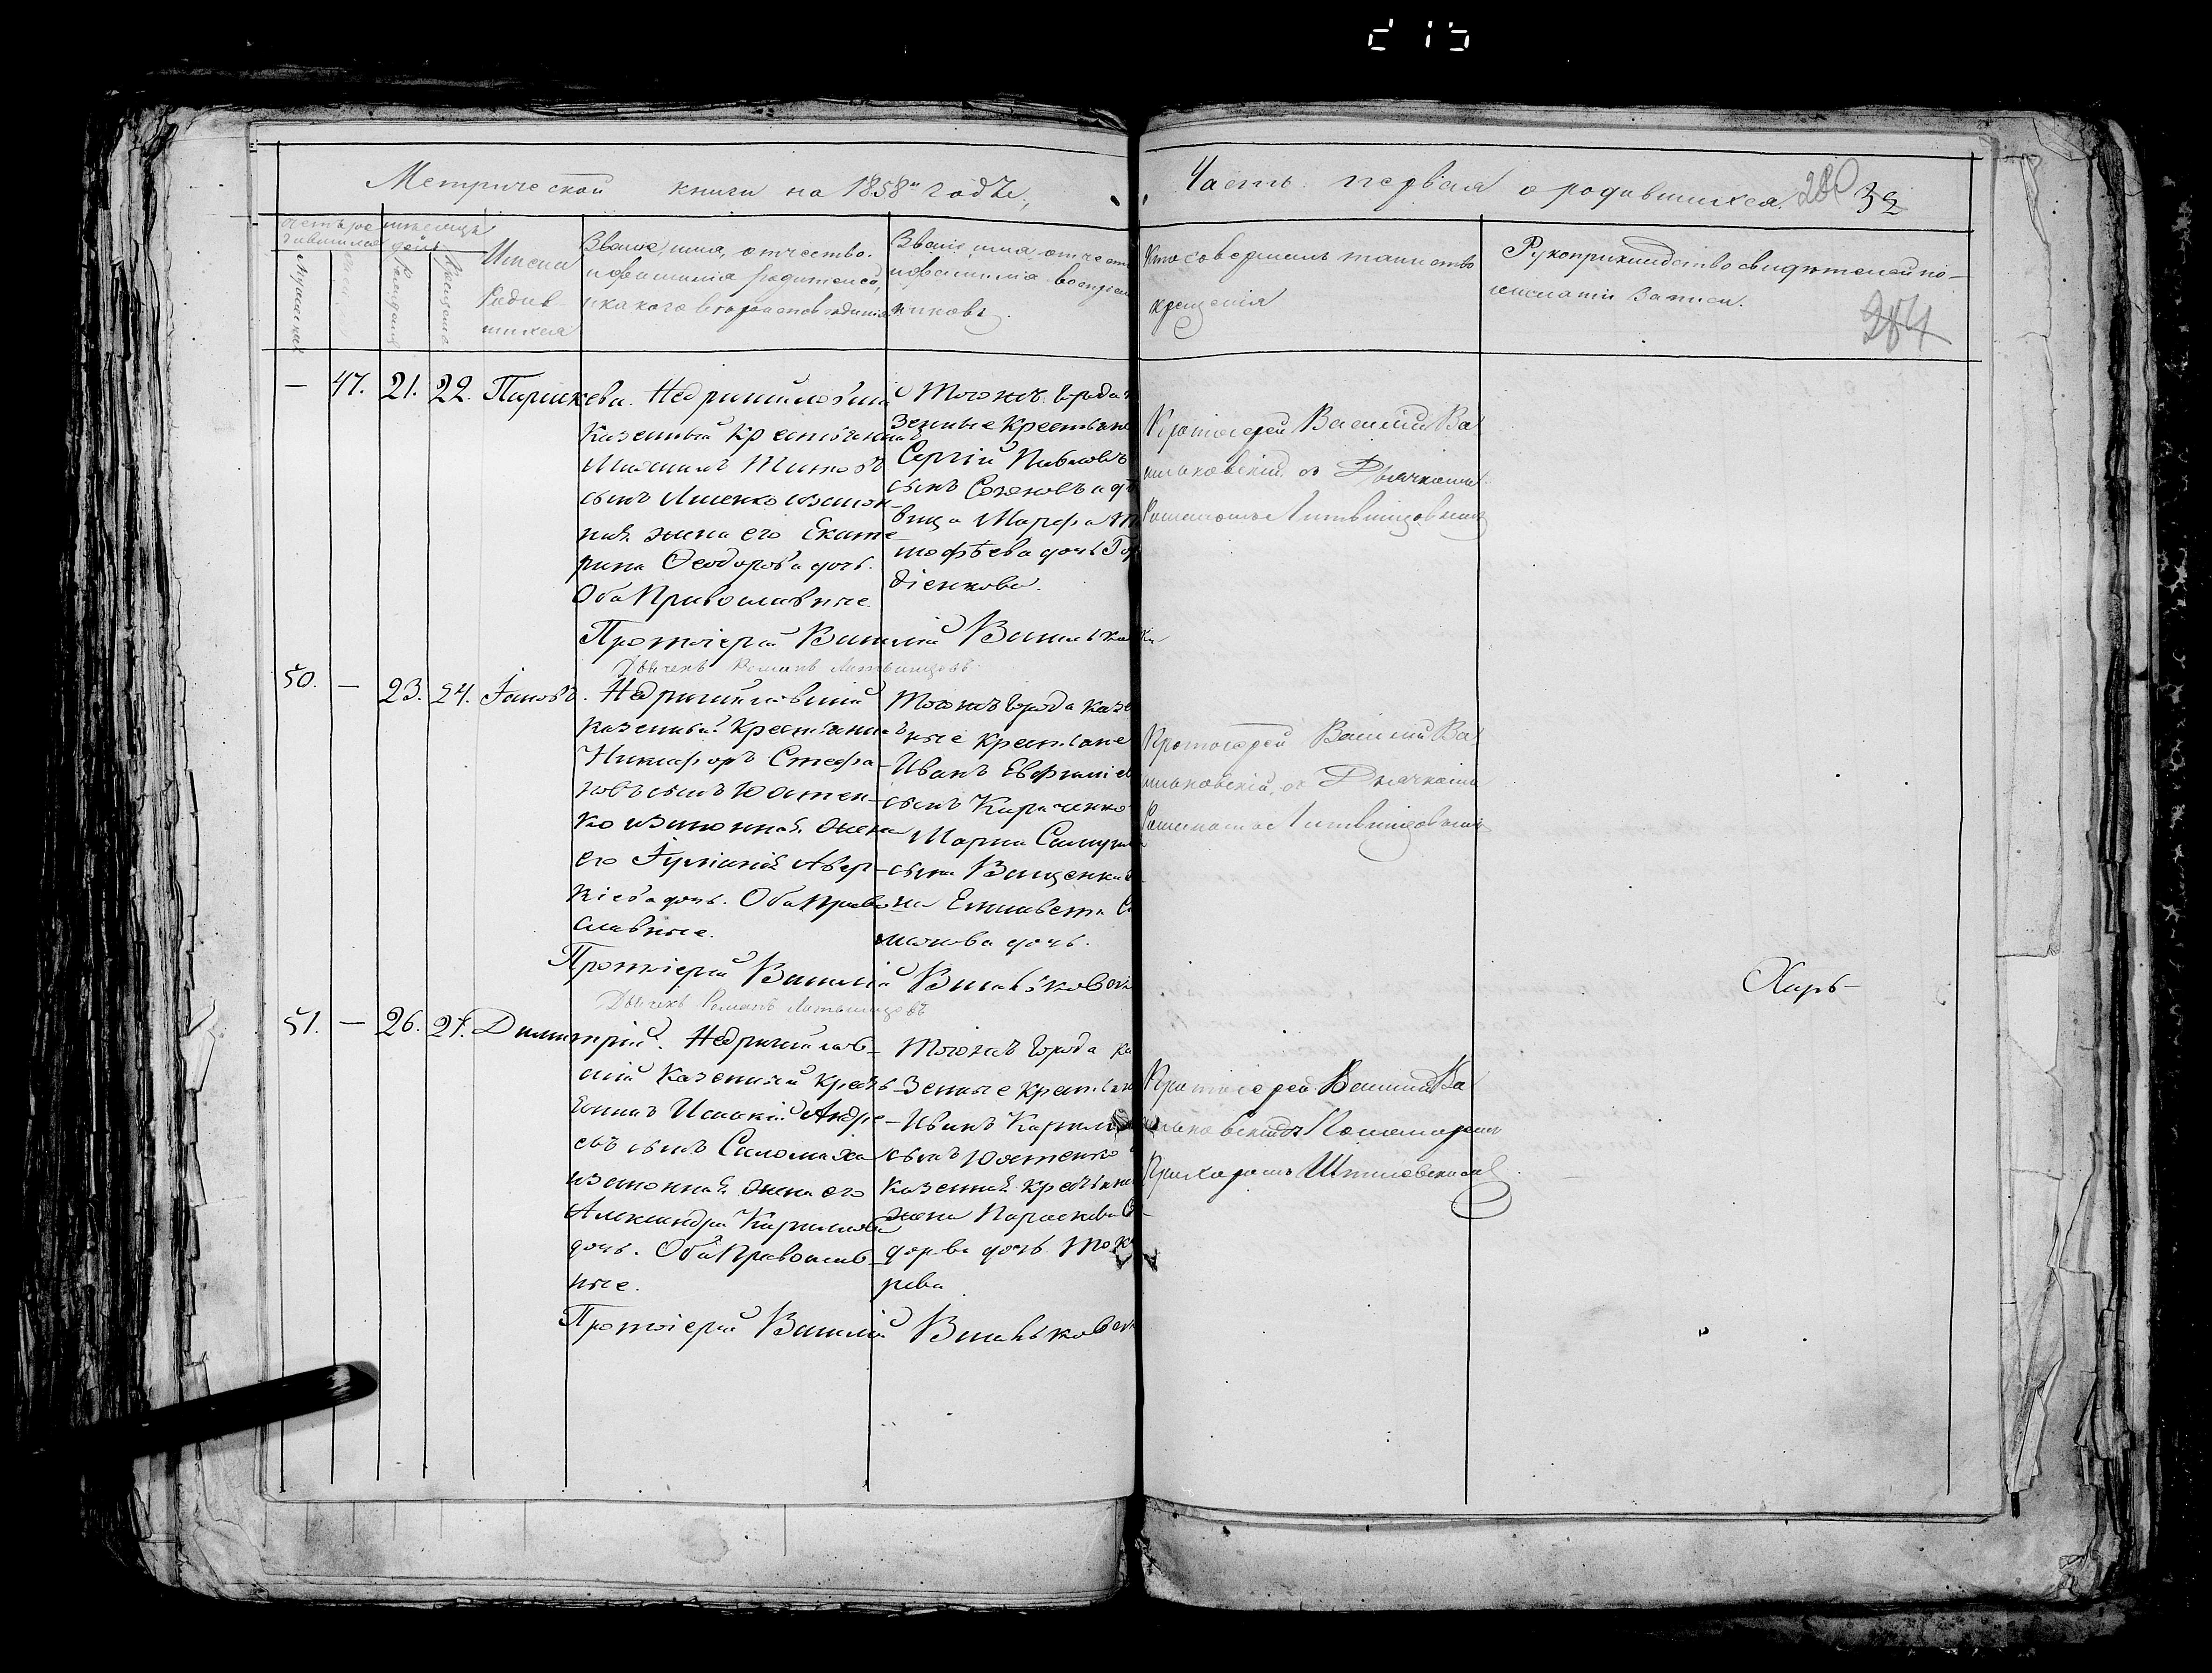 Метрической книги на 1858й годъ,
Часть первая о родившихся. 280 32
284
Имена
Родив-
шихся
Званіе, имя, отчество.
и фамилія родителей,
и какого вѣроисповѣданія
Званіе, имя, отчест
и фамилія воспріем
никовъ.
Кто совершалъ таинство
крещенія
Рукоприкладство свидѣтелей по-
записи.
— 47. 21. 22. Параскева.
Недригайловскій
Казенный крестьянинъ
сынъ Ященко и законн-
ная жена его Екате-
рина Ѳеодорова дочь.
Оба Православные.
Тогожъ города
зенные крестьяне
Сергій Павловъ
сынъ
вица Марѳа
дочь Гор
діенкова.
Протоіерей Василій Ва-
сильковскій съ Дьячкомъ
Романомъ Литвинцовымъ
Протоіерей Василій Васильковскі
Дьячекъ Романъ Литвинцовъ
50. — 23. 24. Іаковъ.
Недригайловскій
казенный крестьянинъ
Никифоръ Стефа-
новъ сынъ Юстен-
ко и законная жена
его Іуліанія Авер-
кіева дочь. Оба право
славные.
Тогожъ города казе
нные крестьяне
Иванъ Евфиміе
сынъ Кириченко
Марка Самуил
сына Ващенка
на Елисавета С
дочь.
Протоіерей Василій Ва-
сильковскій, съ Дьячкомъ
Романомъ Литвинцовымъ
Протоіерей Василій Васильковскі
Дьячекъ Романъ Литвинцовъ
Харь-
51. — 26. 27. Димитрій.
Недригайлов-
скій Казенный кресть-
янинъ Исаакій Андре-
евъ сынъ Саломаха
и законная жена его
Александра Кирилова
дочь. Оба Православ-
ные.
Тогожъ города ка
зенные крестьяне
Иванъ Кирилов
сынъ Юстенко
казенная крестьянк
жена Параскева
дорва дочь Ток
рева
Протоіерей Василій Ва
сильковскій съ Пономаремъ
Протоіерей Василій Васильковск